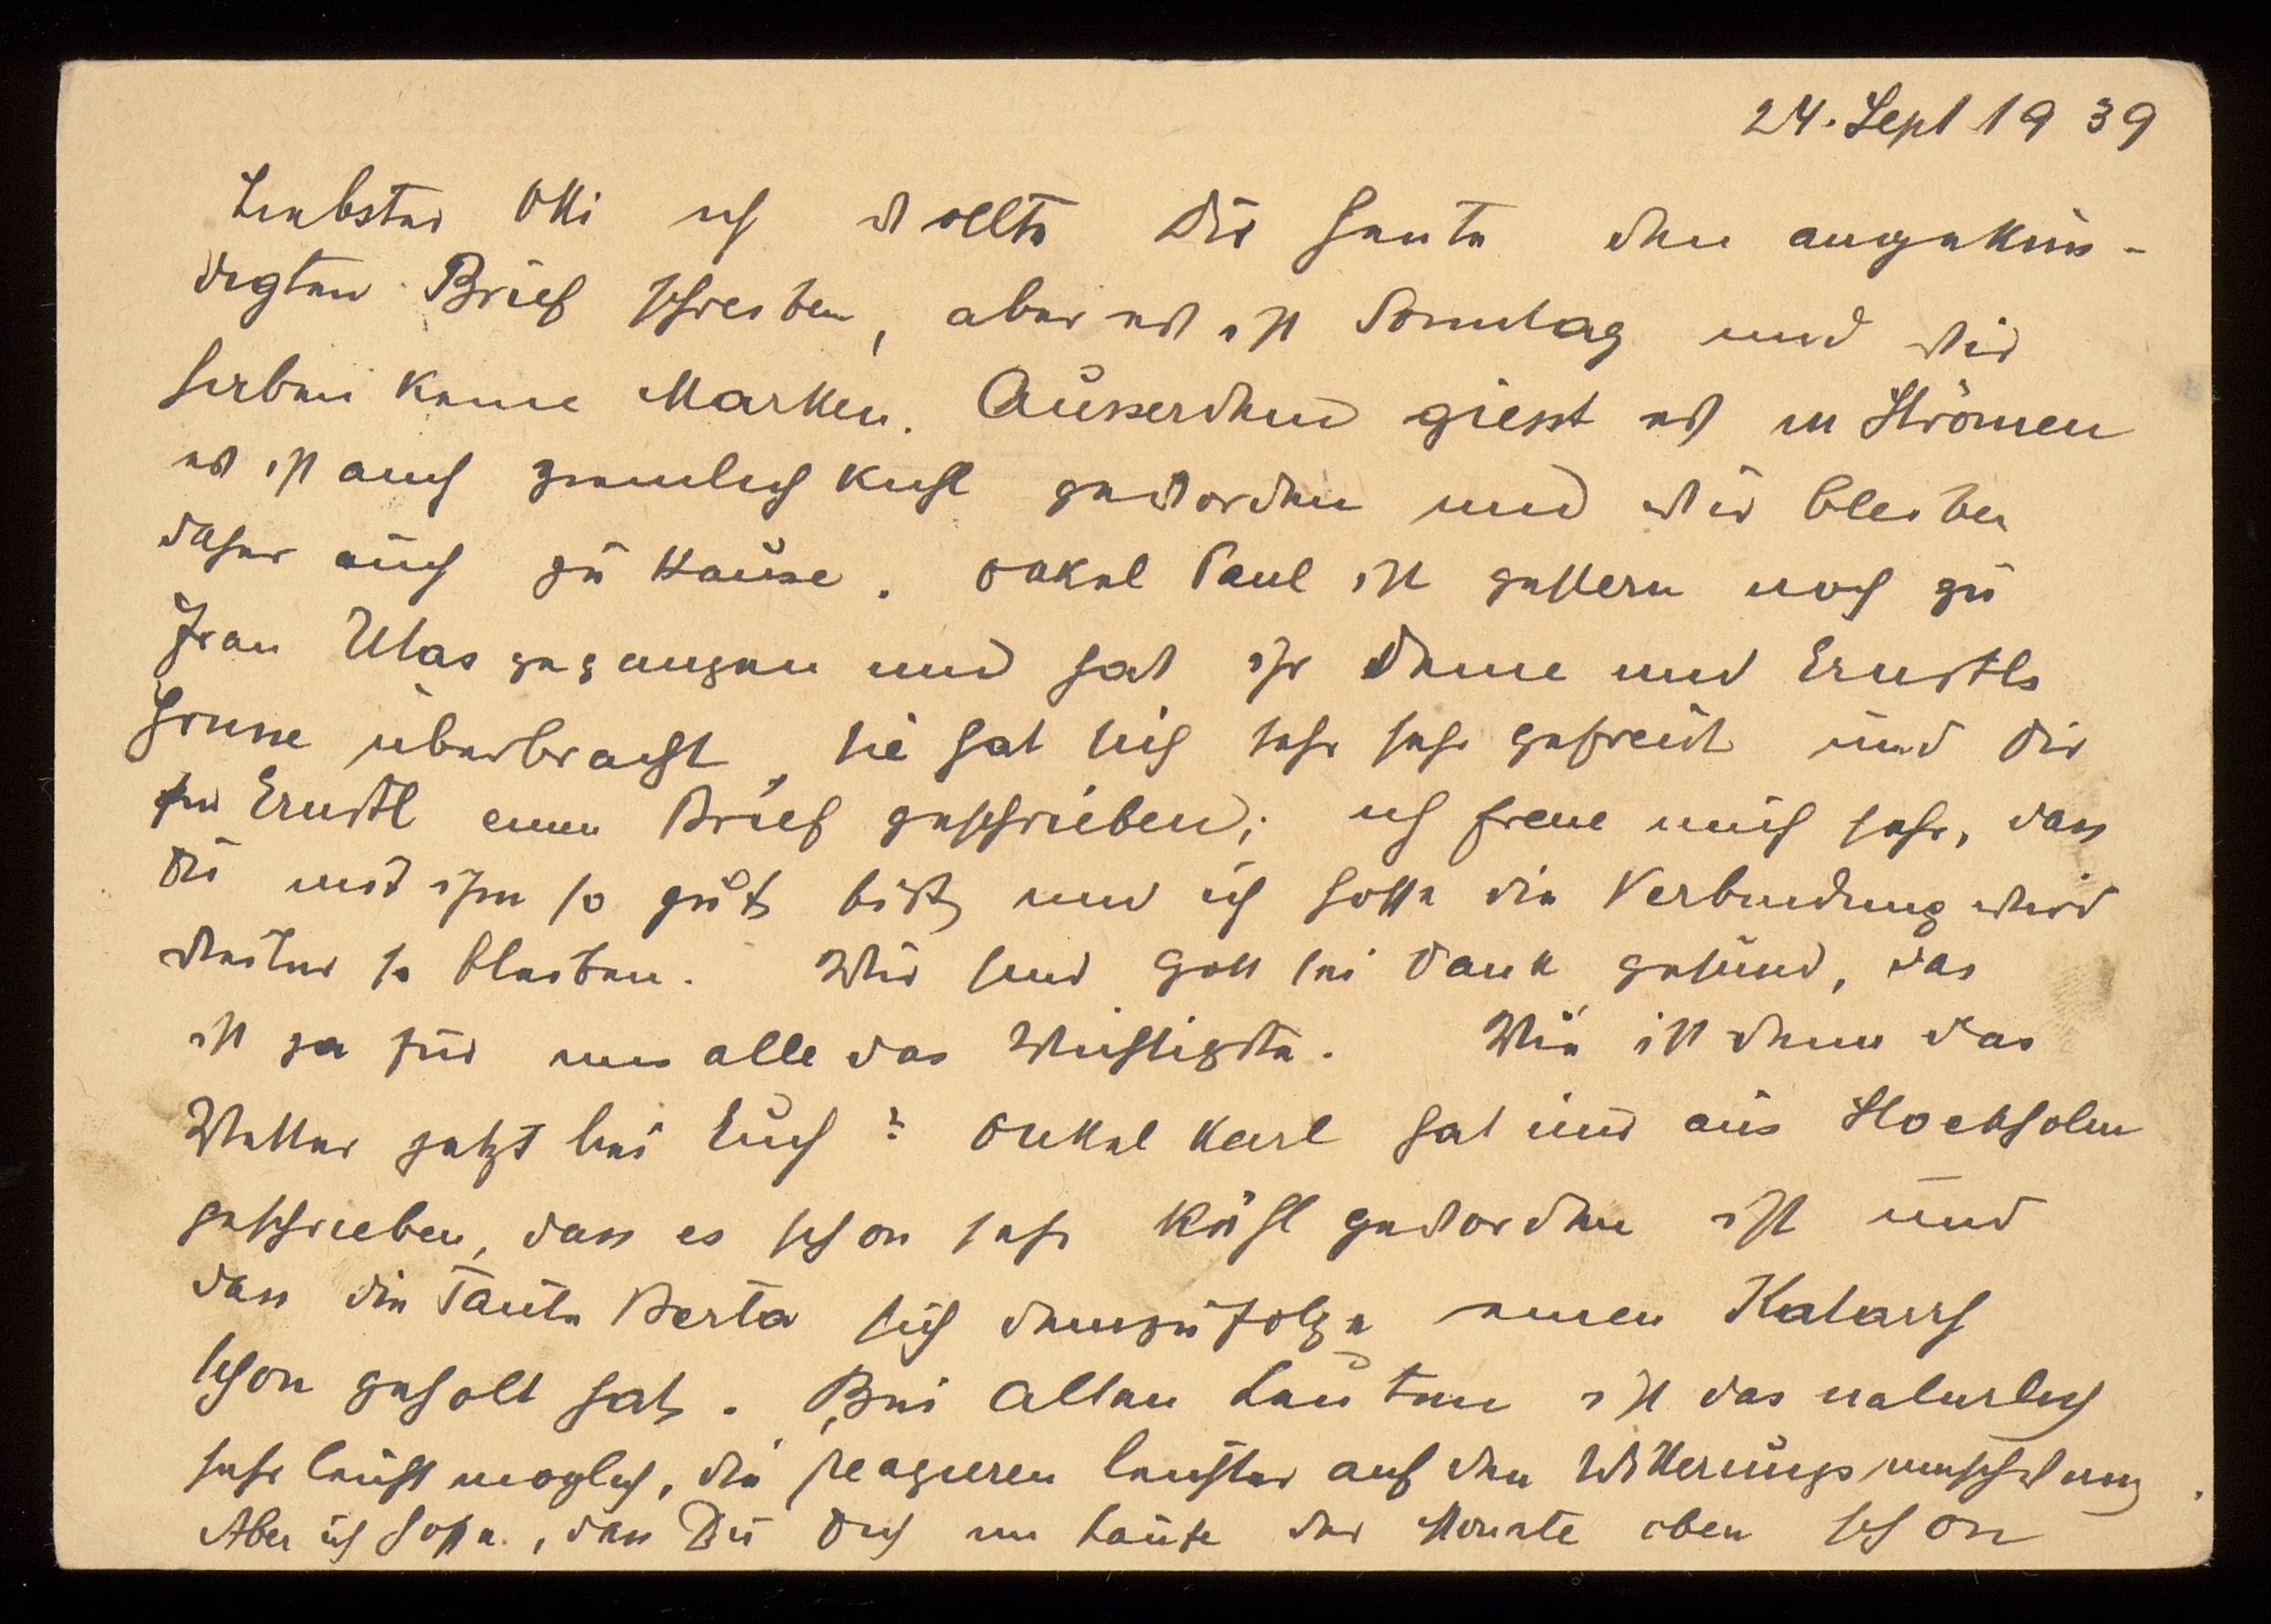 24. Sept 1939
Liebster Otti ich wollte Dir heute den angekün-
digten Brief schreiben, aber es ist Sonntag und wir
haben keine Marken. Ausserdem giesst es in Strömen
es ist auch ziemlich kuhl geworden und wir bleiben
daher auch zu Hause. Onkel Paul ist gestern noch zu
Frau Ulas gegangen und hat ihr Deine und Ernstls
Grusse überbracht, sie hat sich sehr sehr gefreut und Dir
für Ernstl einen Brief geschrieben; ich freue mich sehr, dass
Du mit ihm so gut bist, und ich hoffe die Verbindung wird
weiter so bleiben. Wir sind Gott sei Dank gesund, das
ist ja für uns alle das Wichtigste. Wie ist denn das
Wetter jetzt bei Euch? Onkel Karl hat uns aus Stockholm
geschrieben, dass es schon sehr kühl geworden ist und
dass die Tante Berta sich demzufolge einen Katarrh
schon geholt hat. Bei alten Leuten ist das naturlich
sehr leicht moglich, die reagieren leichter auf den Witterungsumschwung.
Aber ich hoffe, dass Du Dich im Laufe der Monate oben schon